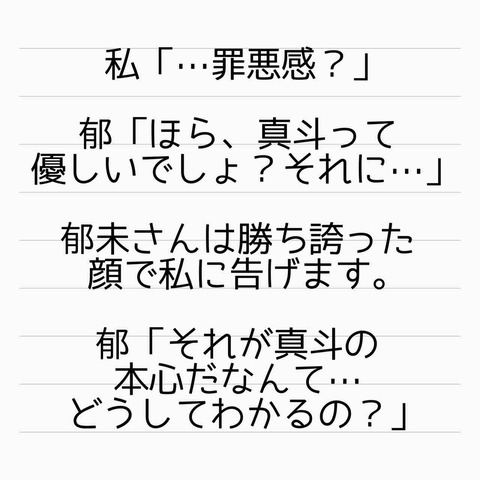 私「…罪悪感？」
郁「ほら、真斗って
優しいでしょ？それに…」
郁未さんは勝ち誇った
顔で私に告げます。
郁「それが真斗の
本心だなんて…
どうしてわかるの？」